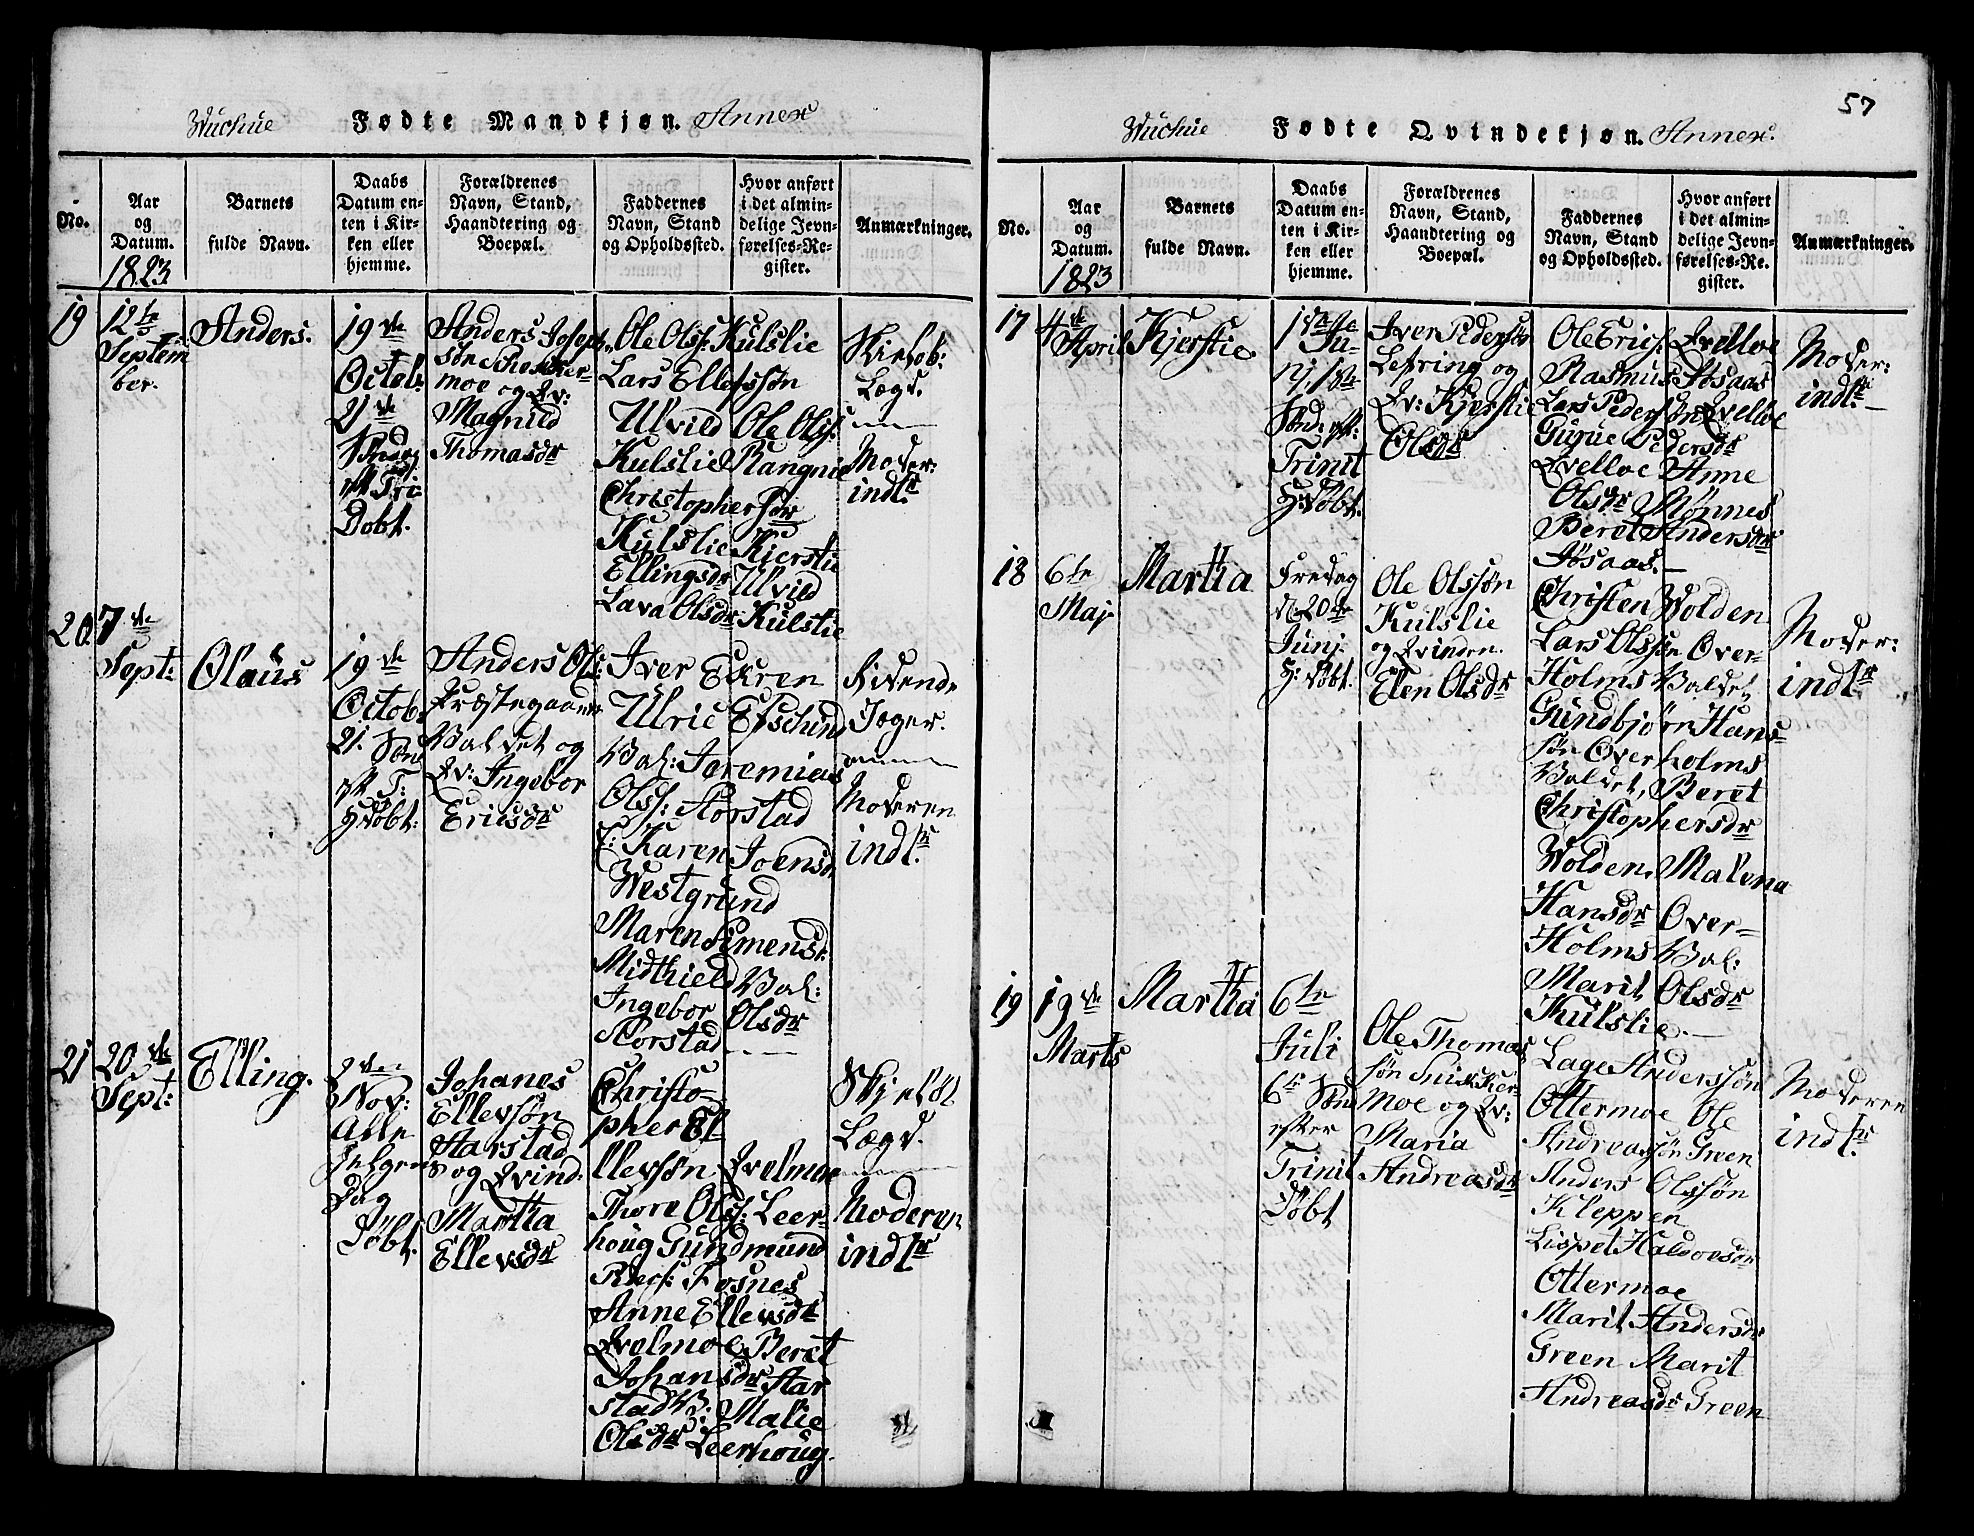 57
Wuchue Fødte Mandkjøn. Annex
No.
Aar og Datum.
1823
Barnets fulde Navn.
Daabs Datum enten i Kirken eller hjemme.
Forældrenes Navn, Stand, Haandtering og Boepæl.
Faddernes Navn, Stand og Opholdssted.
Hvor anført i det almindelige Jevnførelses-Register.
Anmærkninger.
19
12te
Septem
ber.
Anders.
19de
Octob:
21de
Dobt.
Anders Joseph
søn
moe og Qv:
Magnild
Thomasdr
Ole Olss: Kulslie
Lars Ellefssøn
Ulvild Ole Olss:
Kulslie Rangnie
Christophersdr
Kulslie Kierstie
Ellingsdr Ulvild
Lava Olsdr Kulslie
Lægd.
Moder:
indl.
20
7de
Sept:
Olaus
19de
Octob:
21. Sønd
T:
døbt:
Anders Ols:
Præstegaards
Valdet og
Qv: Ingebor
Ericsdr
Iver Ekren
Ulric
Val: Jeremias
Olss: Storstad
Karen Joensdr
Westgrund
Maren Simensd:
Midthield Val:
Ingebor Olsdr
Storstad
Ridende
Jæger.
Moderen
indl.
21
20de
Sept:
Elling.
Nov:
Alle
Helgens
Dag
Døbt.
Johanes
Ellevsøn
Starstad
og Qvind:
Martha
Ellevsdr
Christo-
pher El
llevsøn Qvelmoe
Thore Olss: Leer-
houg Gundmund
Fosnes
Anne Ellevsdr
Qvelmoe Beret
Johansdr Star
stad Malie
Olsdr Leerhoug.
Lægd.
Moderen
indlr
Wuchue Fødte Qvindekjøn. Annex.
No.
Aar og Datum.
1823
Barnets fulde Navn.
Daabs Datum enten i Kirken eller hjemme.
Forældrenes Navn, Stand, Haandtering og Boepæl.
Faddernes Navn, Stand og Opholdssted.
Hvor anført i det almindelige Jevnførelses-Register.
Anmærkninger.
17
4de
April
Kjerstie
Trinit
døbt.
Iver Pedersøn
Lefring og
Qv: Kjerstie
Olsdr
Ole Erics: Qvelloe
Rasmus Jøsaas
Lars Pedersøn Qvelloe
Gurue Pedersdr
Qvelloe Anne
Olsdr Mønnes
Beret Andersdr
Jøsaas.
Moder:
indl.
18
6te
Maj
Martha
Fredag
20de
Junj
døbt.
Ole Olssøn
Kulslie
og Qvinden
Elen Olsdr
Christen Wolden
Lars Olssøn Over-
Holms Valdet
Gundbjørn Hans-
søn Overholms
Valdet, Beret
Christophersdr
Wolden, Malena
Hansdr Over-
Holms Val:
Marit Olsdr
Kulslie.
Moder:
indlr
19
19de
Marts
Martha
6te
Juli
6te Sønd
efter
Trinit
Døbt
Ole Thomas
søn
moe og Qv:
Maria
Andreasdr
Lage Anderssøn
Ottermoe Ole
Andreassøn Green
Anders Olssøn
Kleppen
Lispet Halvorsdr
Ottermoe
Marit Andersdr
Green Marit
Andreasdr Green
Moderen
indlr